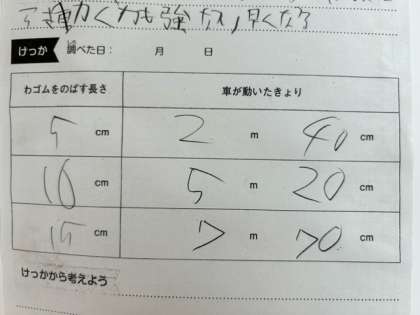 動く力も強くなり、早くなる
けっか 調べた日: 月 日
わゴムをのばす長さ 車が動いたきょり
5 cm 2 m 40 cm
10 cm 5 m 20 cm
15 cm 7 m 70 cm
けっかから考えよう